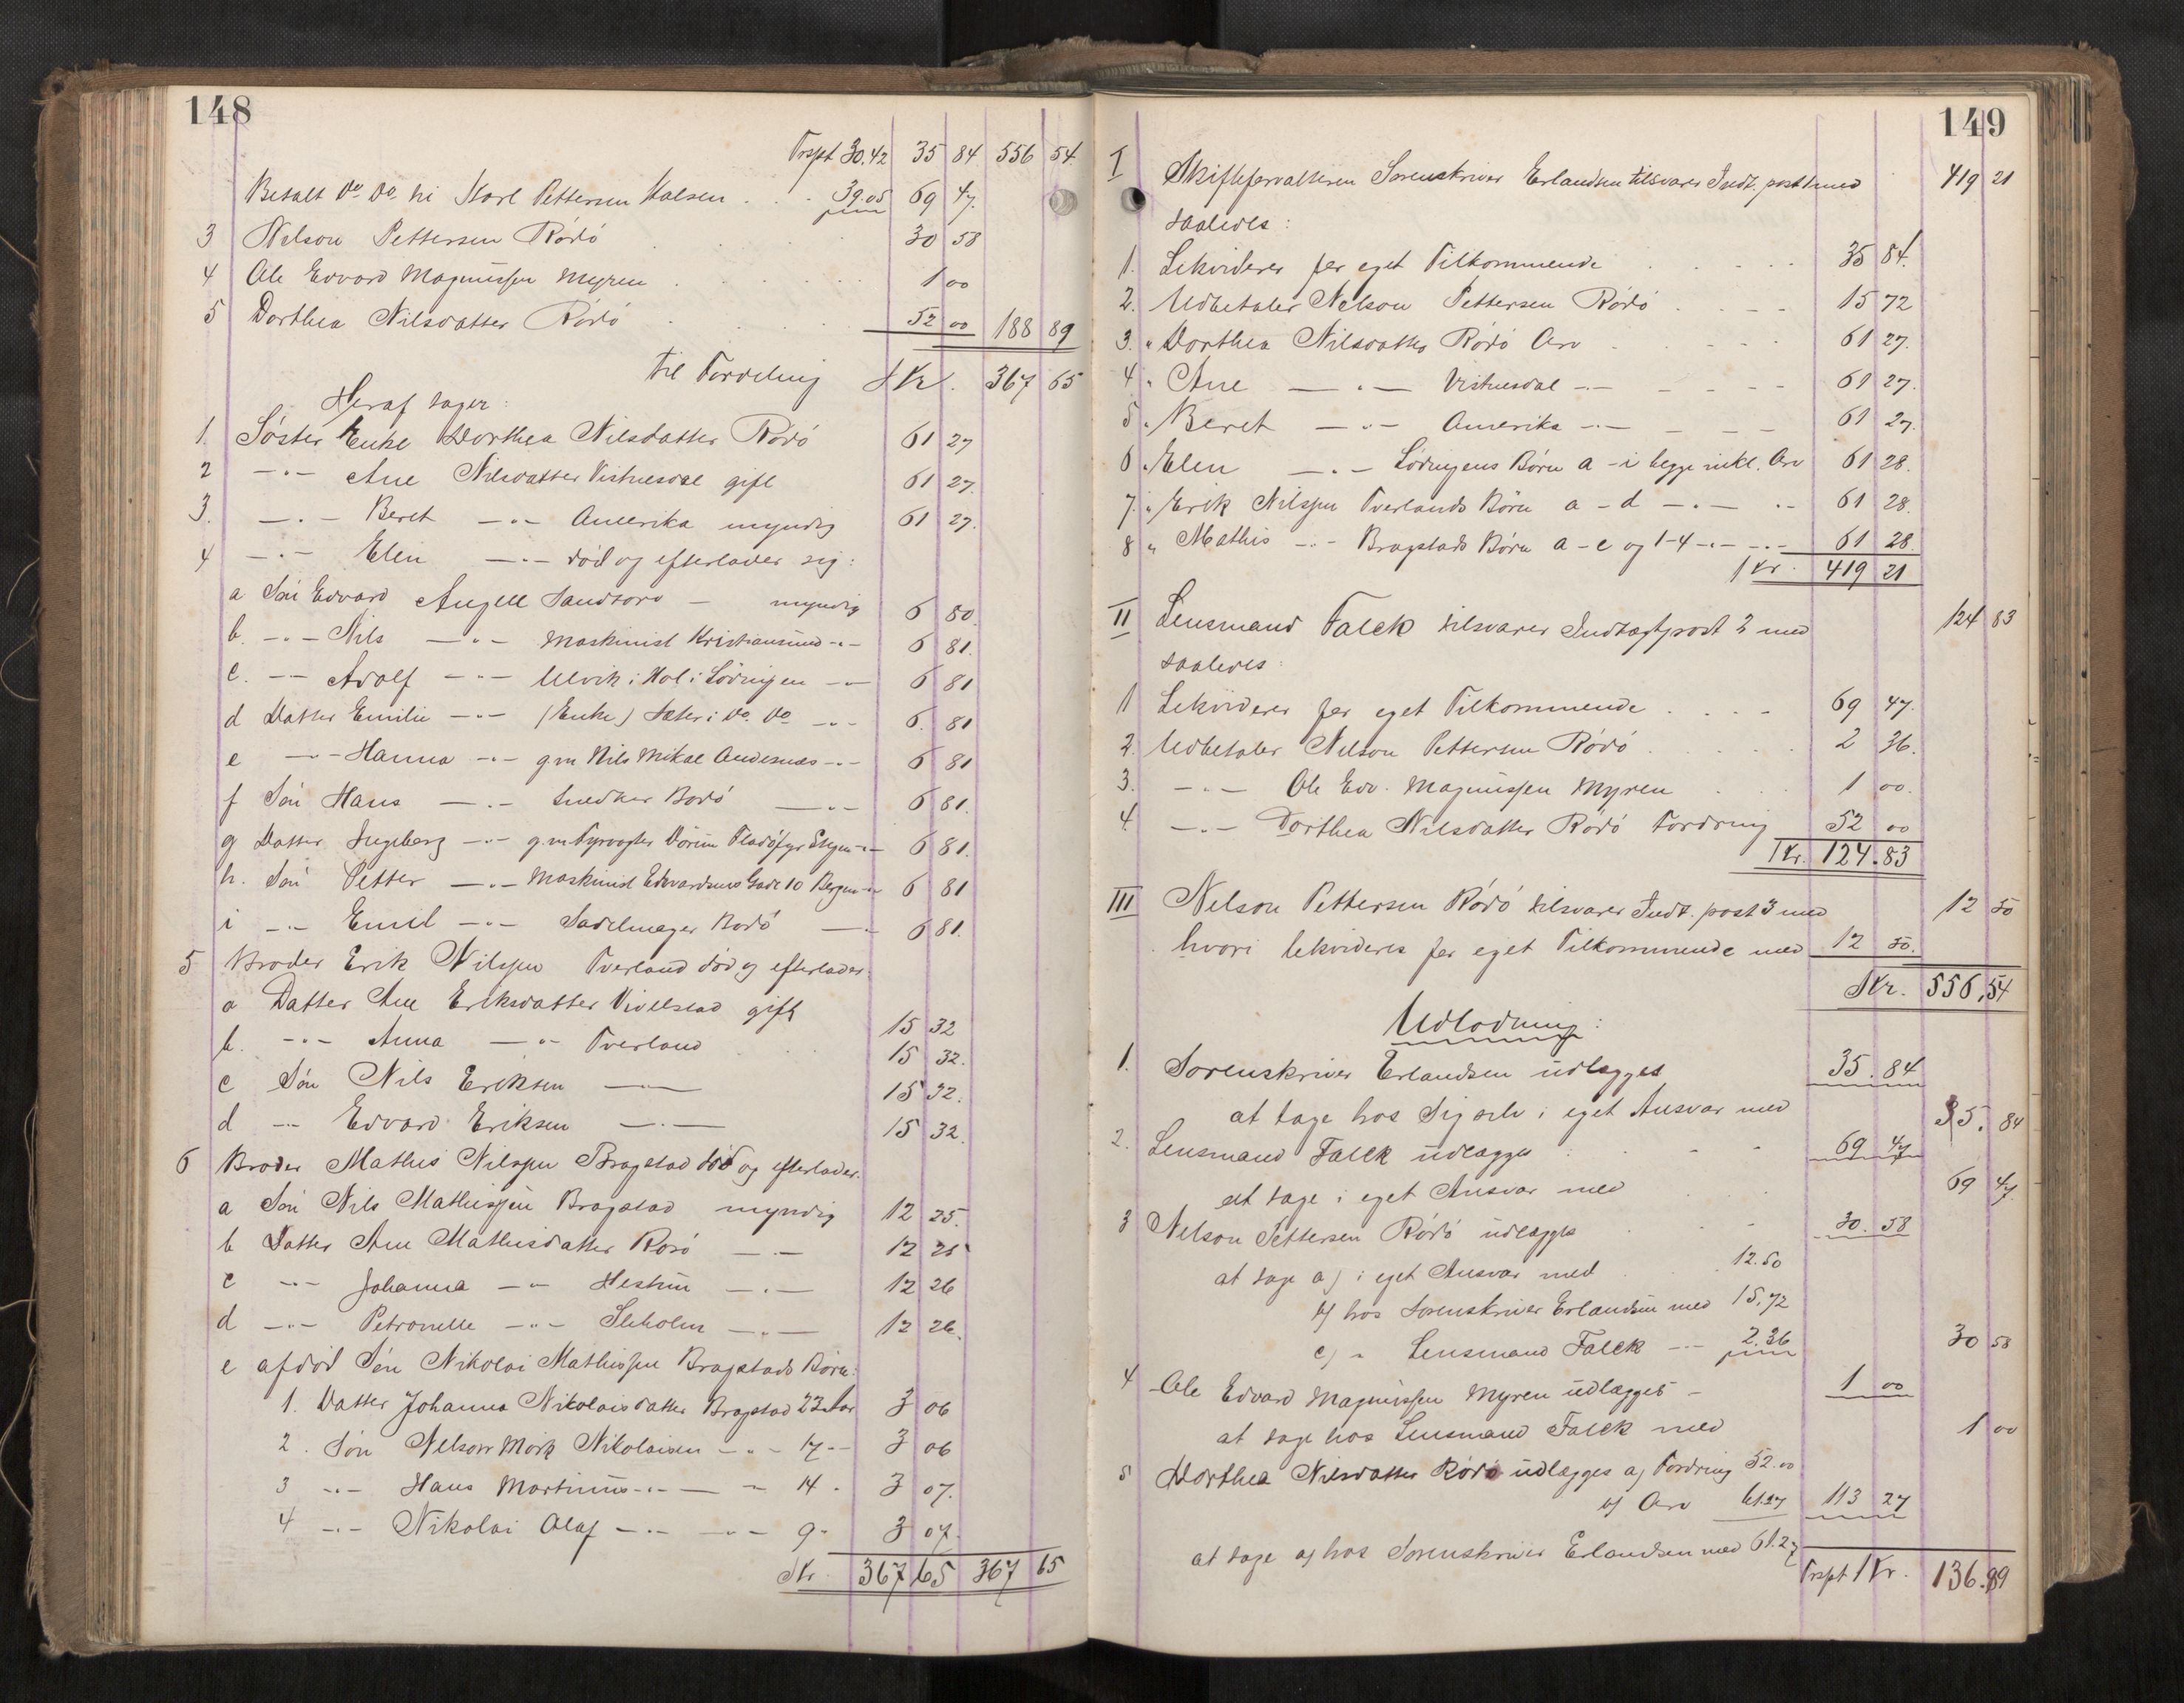 148
Trspt 30.42 35 84 556 54
Betalt Do. Do. til Karl Pettersen Halsen . . . 39.05 69 47.
3 Nelson Pettersen Rödö 30 58
4 Ole Edvard Magnussen Myren 1 00
5 Dorthea Nilsdatter Rödö 52 00 188 89
til Fordeling Kr. 367 65
Heraf tager:
1. Söster Enke Dorthea Nilsdatter Rödö 61 27
2 -"- Ane Nilsdatter Vistnesdal gift 61 27.
3. -"- Beret -"- Amerika myndig 61 27.
4 -"- Elen -"- död og efterlader sig:
a Sön Edvard Angell Sandtorv - myndig 6 80.
b. -"- Nils -"- Maskinist Kristiansund -"- 6 81.
c. -"- Adolf -"- Ulvik i Hol i Lödingen -"- 6 81
d Datter Emilie -"- (Enke) Sæter i Do. Do -"- 6. 81
e -"- Hanna -"- g.m Nils Mikal Andesnæs -"- 6 81
f Sön Hans -"- Snedker Bodö -"- 6 81.
g Datter Ingeborg -"- g.m Fyrvogter Flatöfyr Stegen -"- 6 81.
h. Sön Petter -"- Maskinist Edvardsens Gade 10 Bergen -"- 6 81
i -"- Emil -"- Sadelmager Bodö -"- 6 81.
5 Broder Erik Nilssen Tverland död og efterlader:
a Datter Ane Eriksdatter Vivelstad gift 15 32
b. -"- Anna -"- Tverland 15 32.
c Sön Nils Eriksen -"- 15 32.
d -"- Edvard Eriksen -"- 15 32.
6 Broder Mathis Nilssen Bragstad död og efterlader:
a Sön Nils Mathissen Bragstad myndig 12 25.
b Datter Ane Mathisdatter Rosö -"- 12 25
c -"- Johanna -"- Hestun -"- 12 26
d -"- Petronelle -"- -"- 12 26.
e afdöd Sön Nikolai Mathissen Bragstads Börn:
1. Datter Johanna Nikolaisdatter Bragstad 22 Aar 3 06
2. Sön Nelson Mörk Nikolaisen -"- 17 -"- 3 06
3 -"- Hans Martinus -"- -"- 14 - 3 07.
4 -"- Nikolai Olaf -"- -"- 9 - 3 07.
Kr. 367 65 367 65
149
I Skifteforvalteren Sorenskriver Erlandsen tilsvarer Indt. post 1 med 419 21
saaledes:
1. Lekviderer for eget Tilkommende 35 84.
2. Udbetaler Nelson Pettersen Rödö 15 72
3. " Dorthea Nilsdatter Rödö Arv 61 27.
4 " Ane -"- Vistnesdal -"- 61 27.
5. " Beret -"- Amerika -"- 61 27.
6 " Elen -"- Lödingens Börn a - i begge inkl. Arv 61 28.
7. " Erik Nilssen Tverlands Börn a - d -"- -"- 61 28.
8 " Mathis -"- Bragstads Börn a - e og 1-4 -"- -"- 61 28.
Kr. 419 21
II Lensmand Falck tilsvarer Indtægtpost 2 med 124 83
saaledes:
1 Lekviderer for eget Tilkommende 69 47.
2. Udbetaler Nelson Pettersen Rödö 2 36.
3. -"- Ole Edv. Magnussen Myren 1 00.
4. -"- Dorthea Nilsdatter Rödö Fordring 52 00
Kr. 124.83
III Nelson Pettersen Rödö tilsvarer Indt. post 3 med 12 50
hvori lekvideres for eget Tilkommende med 12 50.
Kr. 556,54
Udlodning:
1. Sorenskriver Erlandsen udlægges 35.84
at tage hos Sig selv i eget Ansvar med 35. 84
2. Lensmand Falck udlægges 69 47
at tage i eget Ansvar med 69 47.
3 Nelson Pettersen Rödö udlægges 30. 58
at tage a) i eget Ansvar med 12.50
b) hos Sorenskriver Erlandsen med 15.72
c) " Lensmand Falck -"- 2.36 30 58
4 Ole Edvard Magnussen Myren udlægges - 1 00
at tage hos Lensmand Falck med 1 00
5 Dorthea Nilsdatter Rödö udlægges a) Fordring 52.00
b) Arv 61.27 113 27
at tage a) hos Sorenskriver Erlandsen med 61.27
Trspt Kr. 136.89